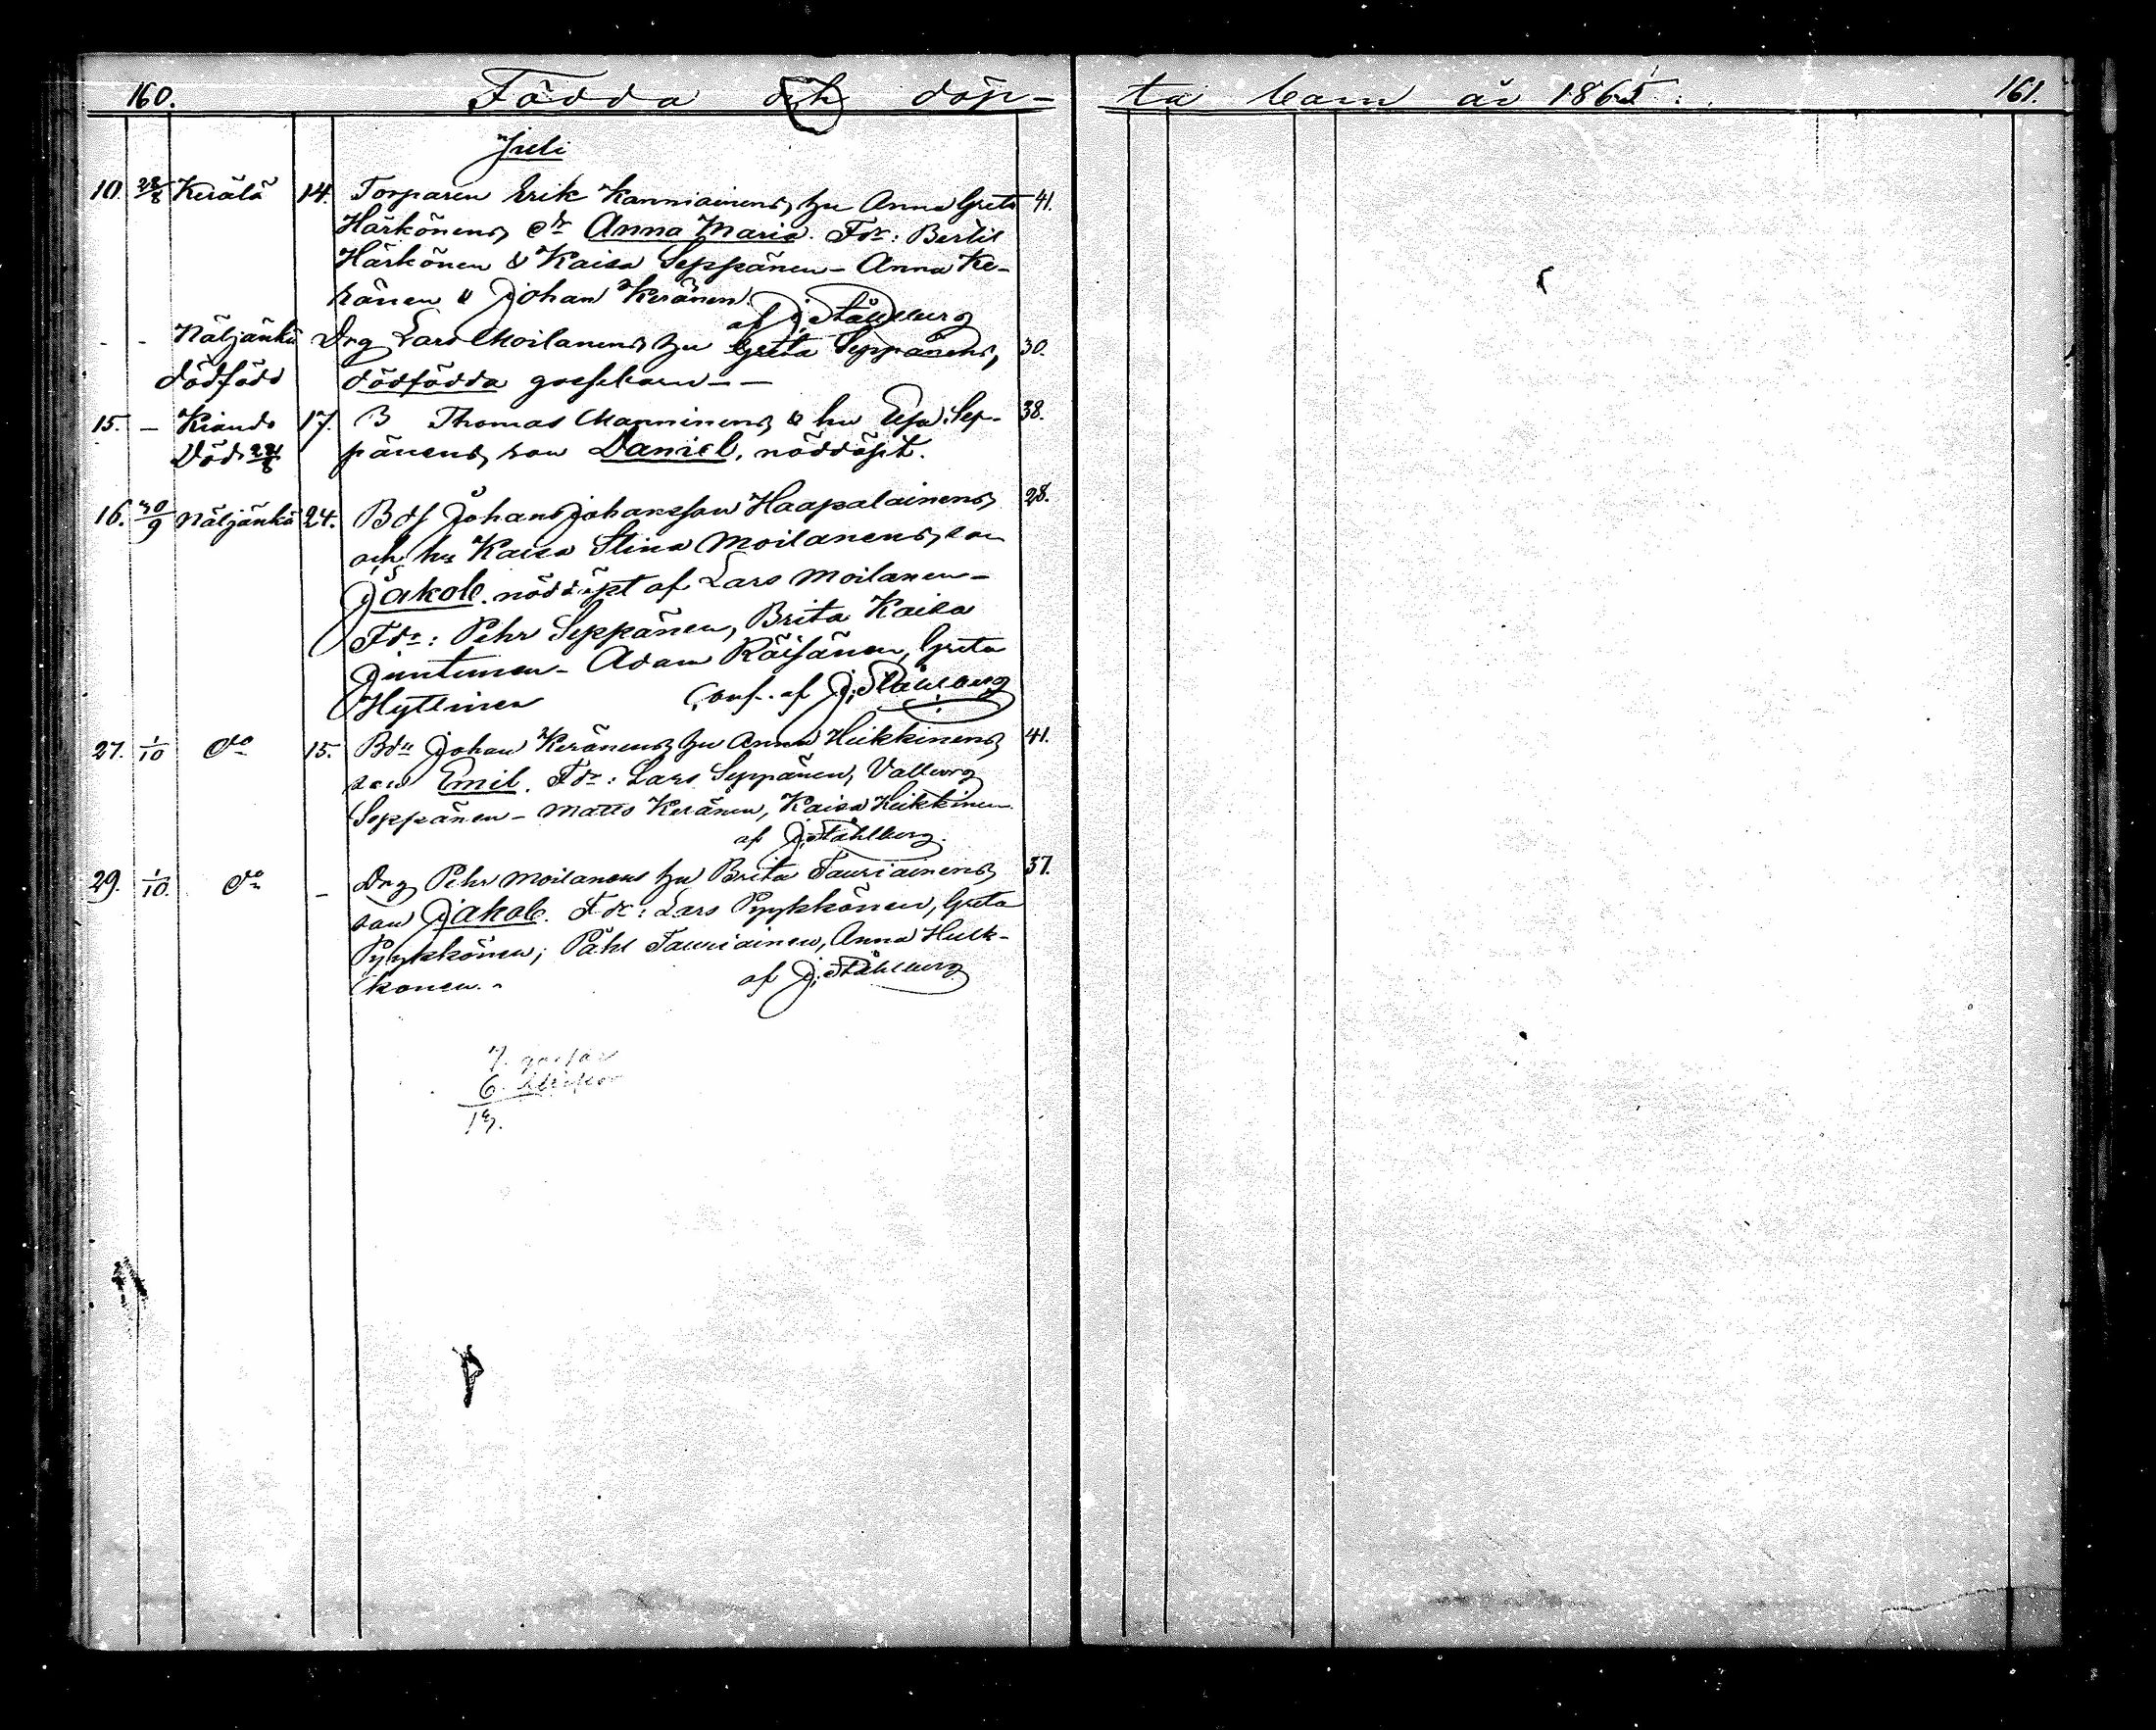 160. Födda och döp-
ta barn år 1865. 161.
Juli
10. 28/8 Kerälä 14. Torparen Erik Kanniainens, hu Anna Greta 41.
Härkönens, dr Anna Maria. Fdr: Bertil
Härkönen & Kaisa Seppänen - Anna Ke-
ränen & Johan Keränen.
af J. Ståhlberg
- - Näljänkä Drg Lars Moilanens, hu Greta Seppänens, 30.
dödfödd dödfödda gossebarn - -
15. - Kiando 17. B Thomas Manninens, & hu Eva Sep- 38.
Död pänens, son Daniel, nöddöpt.
16. 30/9 Näljänkä 24. Bds Johan Johansson Haapalainens, 28.
och hu Kaisa Stina Moilanens, son
Jakob. nöddöpt af Lars Moilanen -
Fdr: Pehr Seppänen, Brita Kaisa
Juntunen - Adam Räisänen, Greta
Hyttinen Conf. af J. Ståhlberg
27. 1/10 do 15. Bdn Johan Keränens, hu Anna Heikkinens, 41.
son Emil. Fdr: Lars Seppänen, Valborg
Seppänen - Matts Keränen, Kaisa Heikkinen
af J. Ståhlberg.
29. 1/10. do - Drg Pehr Moilanens hu Brita Tauriainens, 37.
son Jakob. Fdr: Lars Pyykkönen, Greta
Pyykkönen; Påhl Tauriainen, Anna Hulk-
konen. -
af J. Ståhlberg
7. gossar
6. flickor
13.